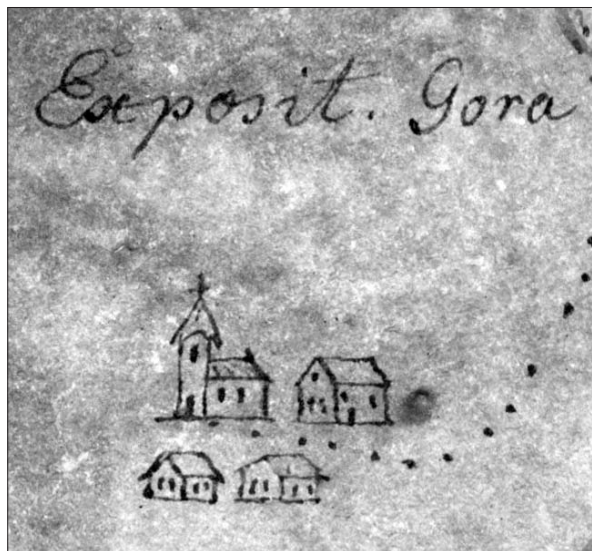 Exposit. Gora